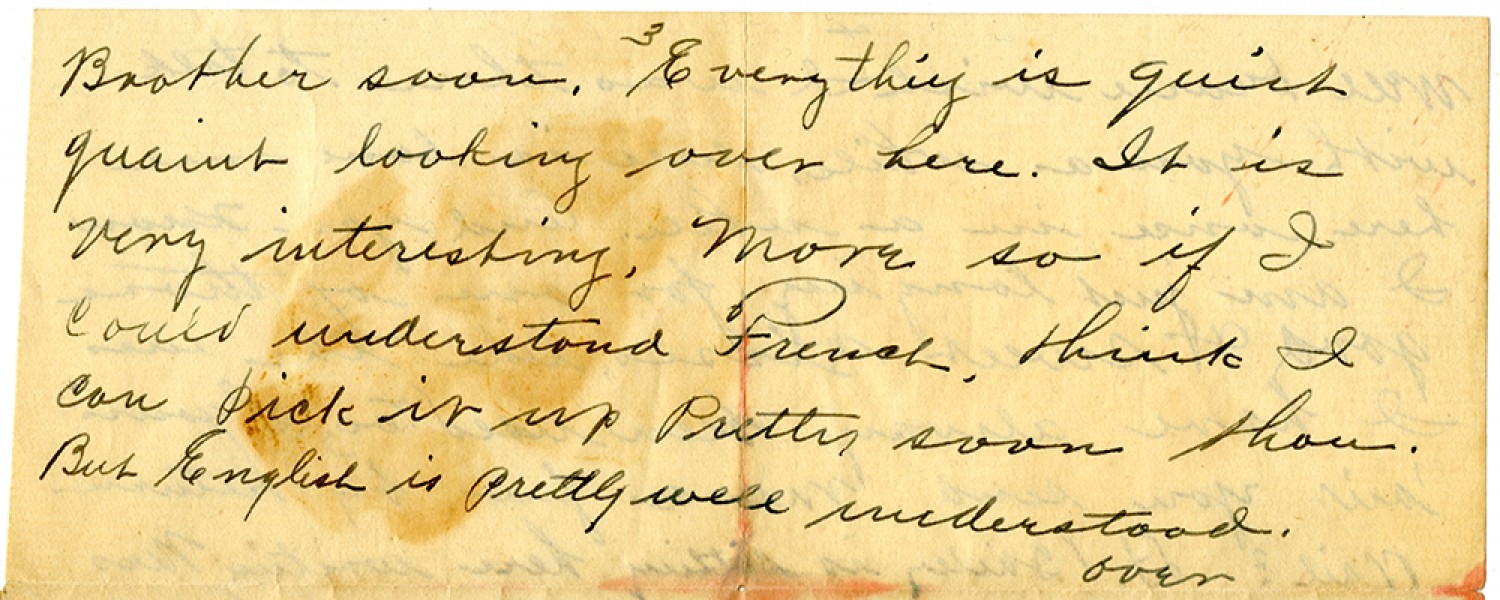 3
Brother soon. Everything is quiet
quaint looking over here. It is
very interesting. More so if I
could understand French, think I
can pick it up Pretty soon thou.
But English is prettly well understood.
over